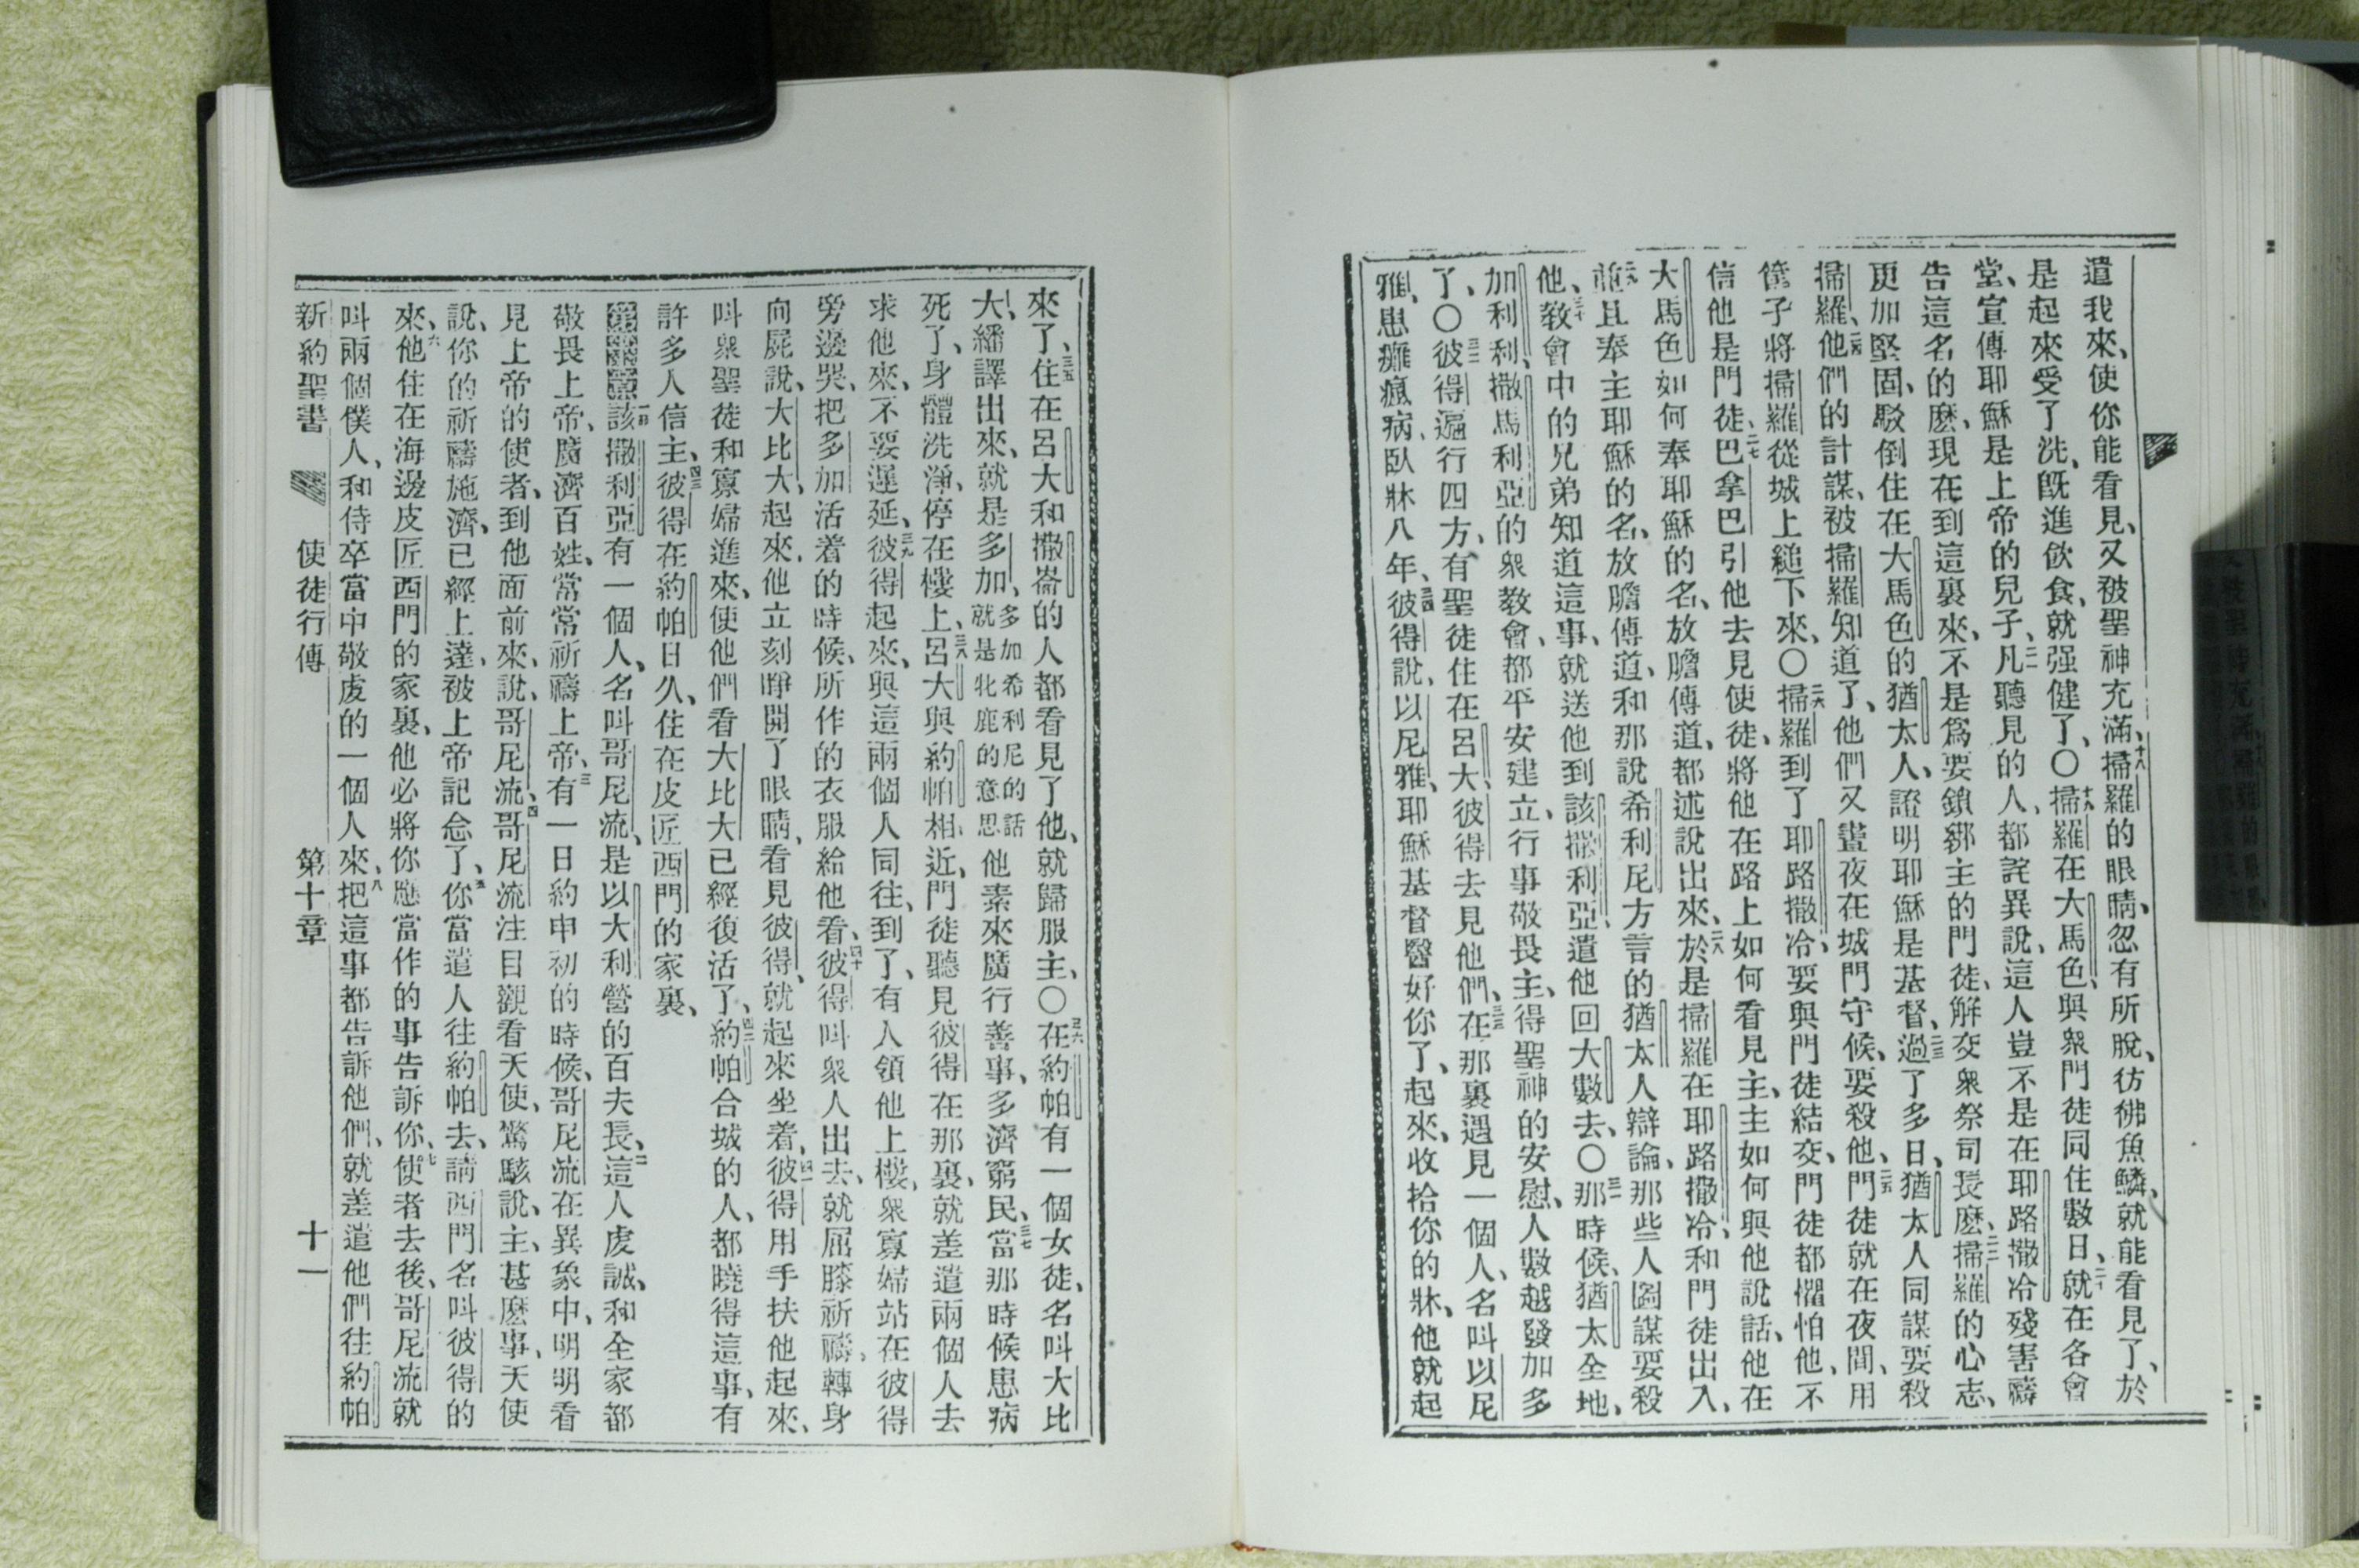 遣我來、使你能看見、又被聖神充滿、十八掃羅的眼睛、忽有所脫、彷彿魚鱗、就能看見了、於
是起來受了洗、旣進飲食、就强健了、〇十九掃羅在大馬色、與衆門徒同住數日、二十就在各會
堂、宣傳耶穌是上帝的兒子、二一凡聽見的人、都詫異說、這人豈不是在耶路撒冷殘害禱
告這名的麽、現在到這裏來、不是爲要鎖綁主的門徒、解交衆祭司長麽、二二掃羅的心志、
更加堅固、駁倒住在大馬色的猶太人、證明耶穌是基督、二三過了多日、猶太人同謀要殺
掃羅、二四他們的計謀、被掃羅知道了、他們又晝夜在城門守候、要殺他、二五門徒就在夜間、用
筐子將掃羅從城上縋下來、〇二六掃羅到了耶路撒冷、要與門徒結交、門徒都懼怕他、不
信他是門徒、二七巴拿巴引他去見使徒、將他在路上如何看見主、主如何與他說話、他在
大馬色如何奉耶穌的名、放膽傳道、都述說出來、二八於是掃羅在耶路撒冷、和門徒出入、
二九並且奉主耶穌的名、放膽傳道、和那說希利尼方言的猶太人辯論、那些人圖謀要殺
他、三十教會中的兄弟知道這事、就送他到該撒利亞、遣他回大數去、〇三一那時候、猶太全地、
加利利、撒馬利亞的衆教會、都平安建立、行事敬畏主、得聖神的安慰、人數越發加多
了、〇三二彼得遍行四方、有聖徒住在呂大、彼得去見他們、三三在那裏遇見一個人、名叫以尼
雅、患癱瘋病、臥牀八年、三四彼得說、以尼雅、耶穌基督醫好你了、起來、收拾你的牀、他就起
來了、三五住在呂大和撒崙的人都看見了他、就歸服主、〇三六在約帕有一個女徒、名叫大比
大、繙譯出來、就是多加、多加希利尼的話就是牝鹿的意思他素來廣行善事、多濟窮民、三七當那時候患病
死了、身體洗淨、停在樓上、三八呂大與約帕相近、門徒聽見彼得在那裏、就差遣兩個人去
求他來、不要遲延、三九彼得起來、與這兩個人同往、到了、有人領他上樓、衆寡婦站在彼得
旁邊哭、把多加活着的時候、所作的衣服給他看、四十彼得叫衆人出去、就屈膝祈禱、轉身
向屍說、大比大、起來、他立刻睜開了眼睛、看見彼得、就起來坐着、四一彼得用手扶他起來、
叫衆聖徒和寡婦進來、使他們看大比大已經復活了、四二約帕合城的人、都曉得這事、有
許多人信主、四三彼得在約帕日久、住在皮匠西門的家裏、
第十章一節該撒利亞有一個人、名叫哥尼流、是以大利營的百夫長、二這人虔誠、和全家都
敬畏上帝、廣濟百姓、常常祈禱上帝、三有一日約申初的時候、哥尼流在異象中、明明看
見上帝的使者、到他面前來、說、哥尼流、四哥尼流注目觀看天使、驚駭說、主、甚麽事、天使
說、你的祈禱施濟、已經上達、被上帝記念了、五你當遣人往約帕去、請西門名叫彼得的
來、六他住在海邊皮匠西門的家裏、他必將你應當作的事告訴你、七使者去後、哥尼流就
叫兩個僕人、和侍卒當中敬虔的一個人來、八把這事都告訴他們、就差遣他們往約帕
新約聖書 使徒行傳 第十章 十一